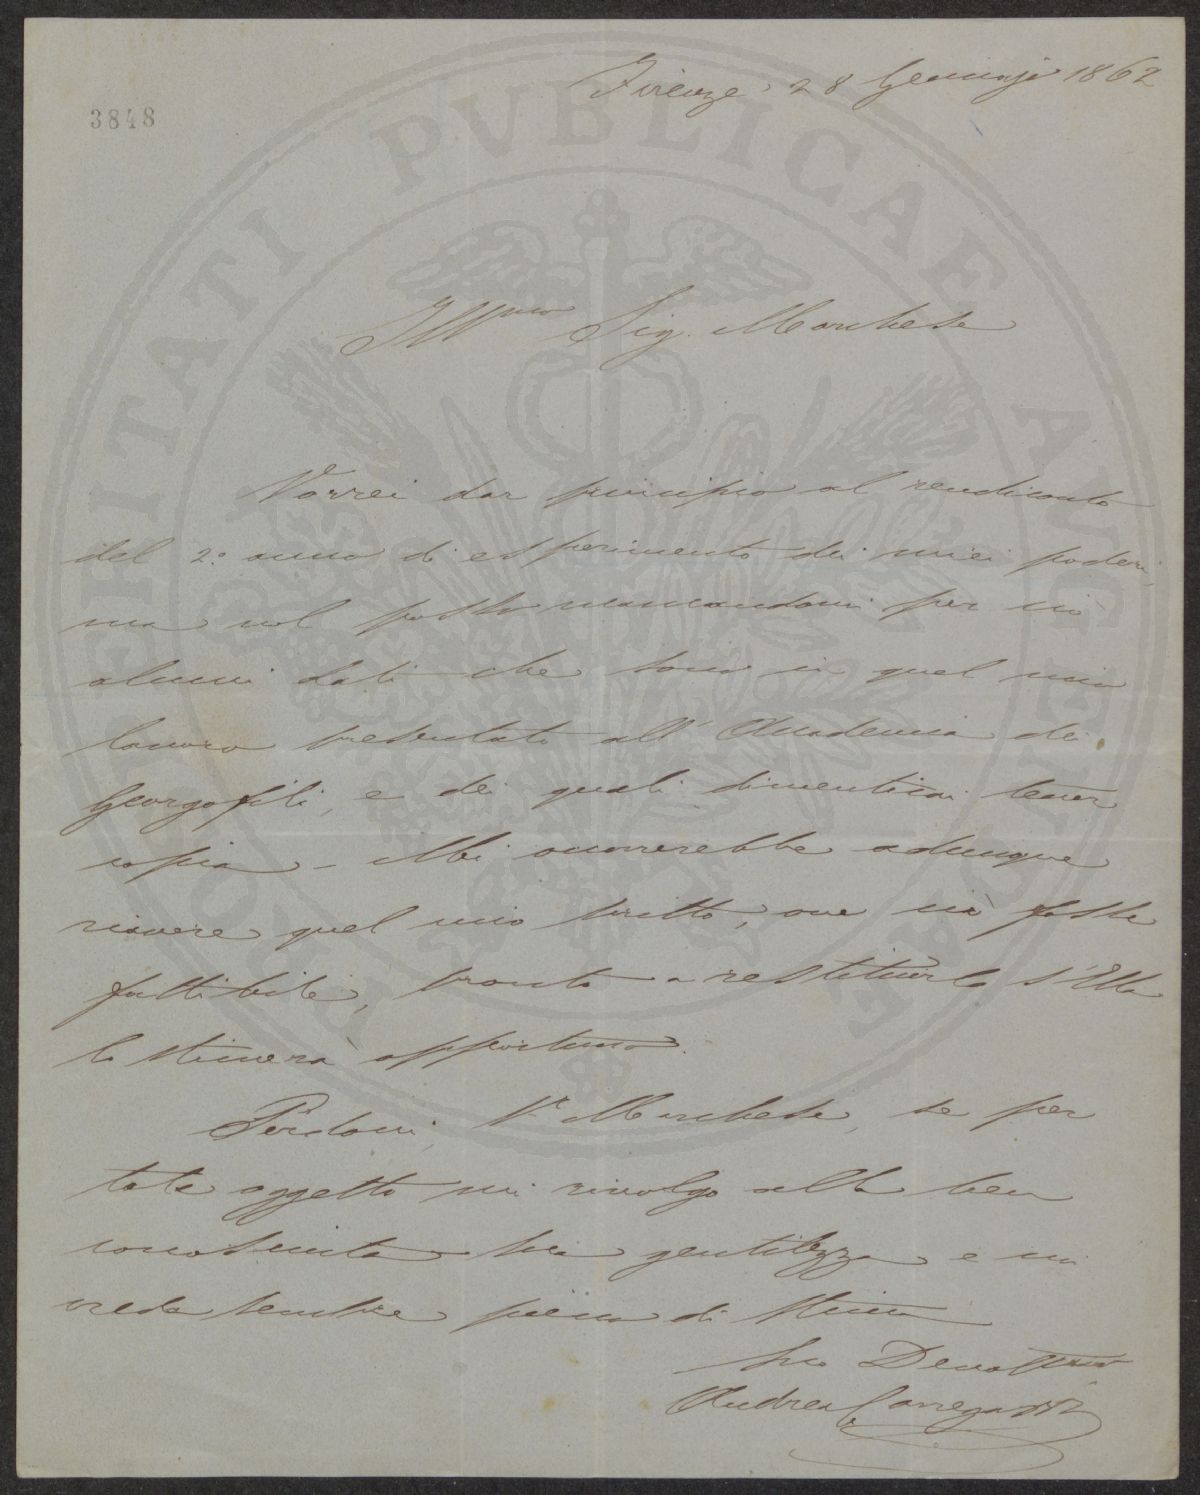 3848
Firenze 28 Gennajo 1862
Illmo Sig. Marchese
Vorrei dar principio al rendiconto
del 2.o anno di esperimento dei miei poderi,
ma nol posso mancandomi per ciò
alcuni dati che sono in quel mio
lavoro presentato all'Accademia dei
Georgofili, e dei quali dimenticai tener
copia - Mi occorrerebbe adunque
riavere quel mio scritto, ove ciò fosse
fattibile, pronto a restituirlo s'Ella
lo stimerà opportuno.
Perdoni, Sr Marchese, se per
tale oggetto mi rivolgo alla ben
conosciuta sua gentilezza e mi
creda sempre pieno di stima
Suo Devotissimo
Andrea Carega
PROSPERITATI PVBLICAE AVGENDAE